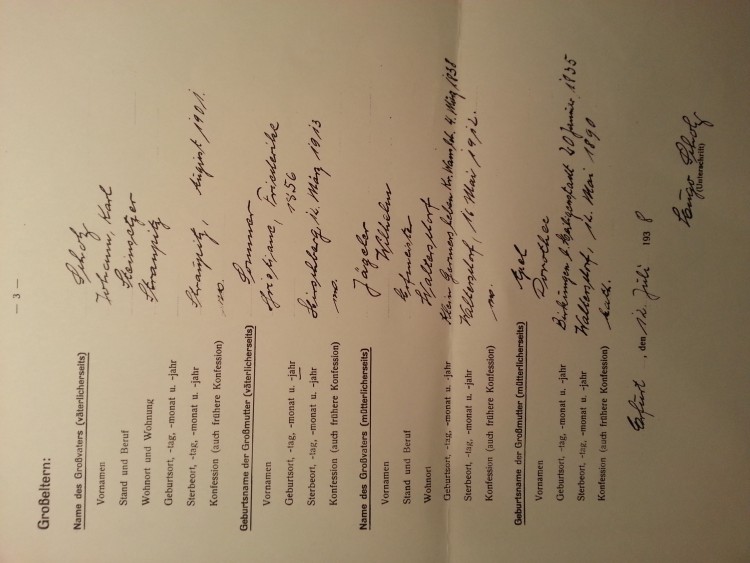 — 3 —
Großeltern:
Name des Großvaters (väterlicherseits) Scholz
Vornamen Johann, Karl
Stand und Beruf Steinsetzer
Wohnort und Wohnung Straupitz
Geburtsort, -tag, -monat u. -jahr
Sterbeort, -tag, -monat u. -jahr Straupitz, August 1901.
Konfession (auch frühere Konfession)
Geburtsname der Großmutter (väterlicherseits) Sommer
Vornamen Christiane, Friederike
Geburtsort, -tag, -monat u. -jahr 1856
Sterbeort, -tag, -monat u. -jahr Hirschberg, März 1913
Konfession (auch frühere Konfession)
Name des Großvaters (mütterlicherseits)
Vornamen Wilhelm
Stand und Beruf Hofmeister
Wohnort Waltersdorf
Geburtsort, -tag, -monat u. -jahr Klein 4. März 1838
Sterbeort, -tag, -monat u. -jahr Waltersdorf, 16 Mai 1912.
Konfession (auch frühere Konfession)
Geburtsname der Großmutter (mütterlicherseits)
Vornamen Dorothee
Geburtsort, -tag, -monat u. -jahr Birkungen b. Heiligenstadt 20 Januar 1835
Sterbeort, -tag, -monat u. -jahr Waltersdorf, 12. Mai 1890
Konfession (auch frühere Konfession) kath.
Erfurt, den 12 Juli 1938
Hugo Scholz
(Unterschrift)